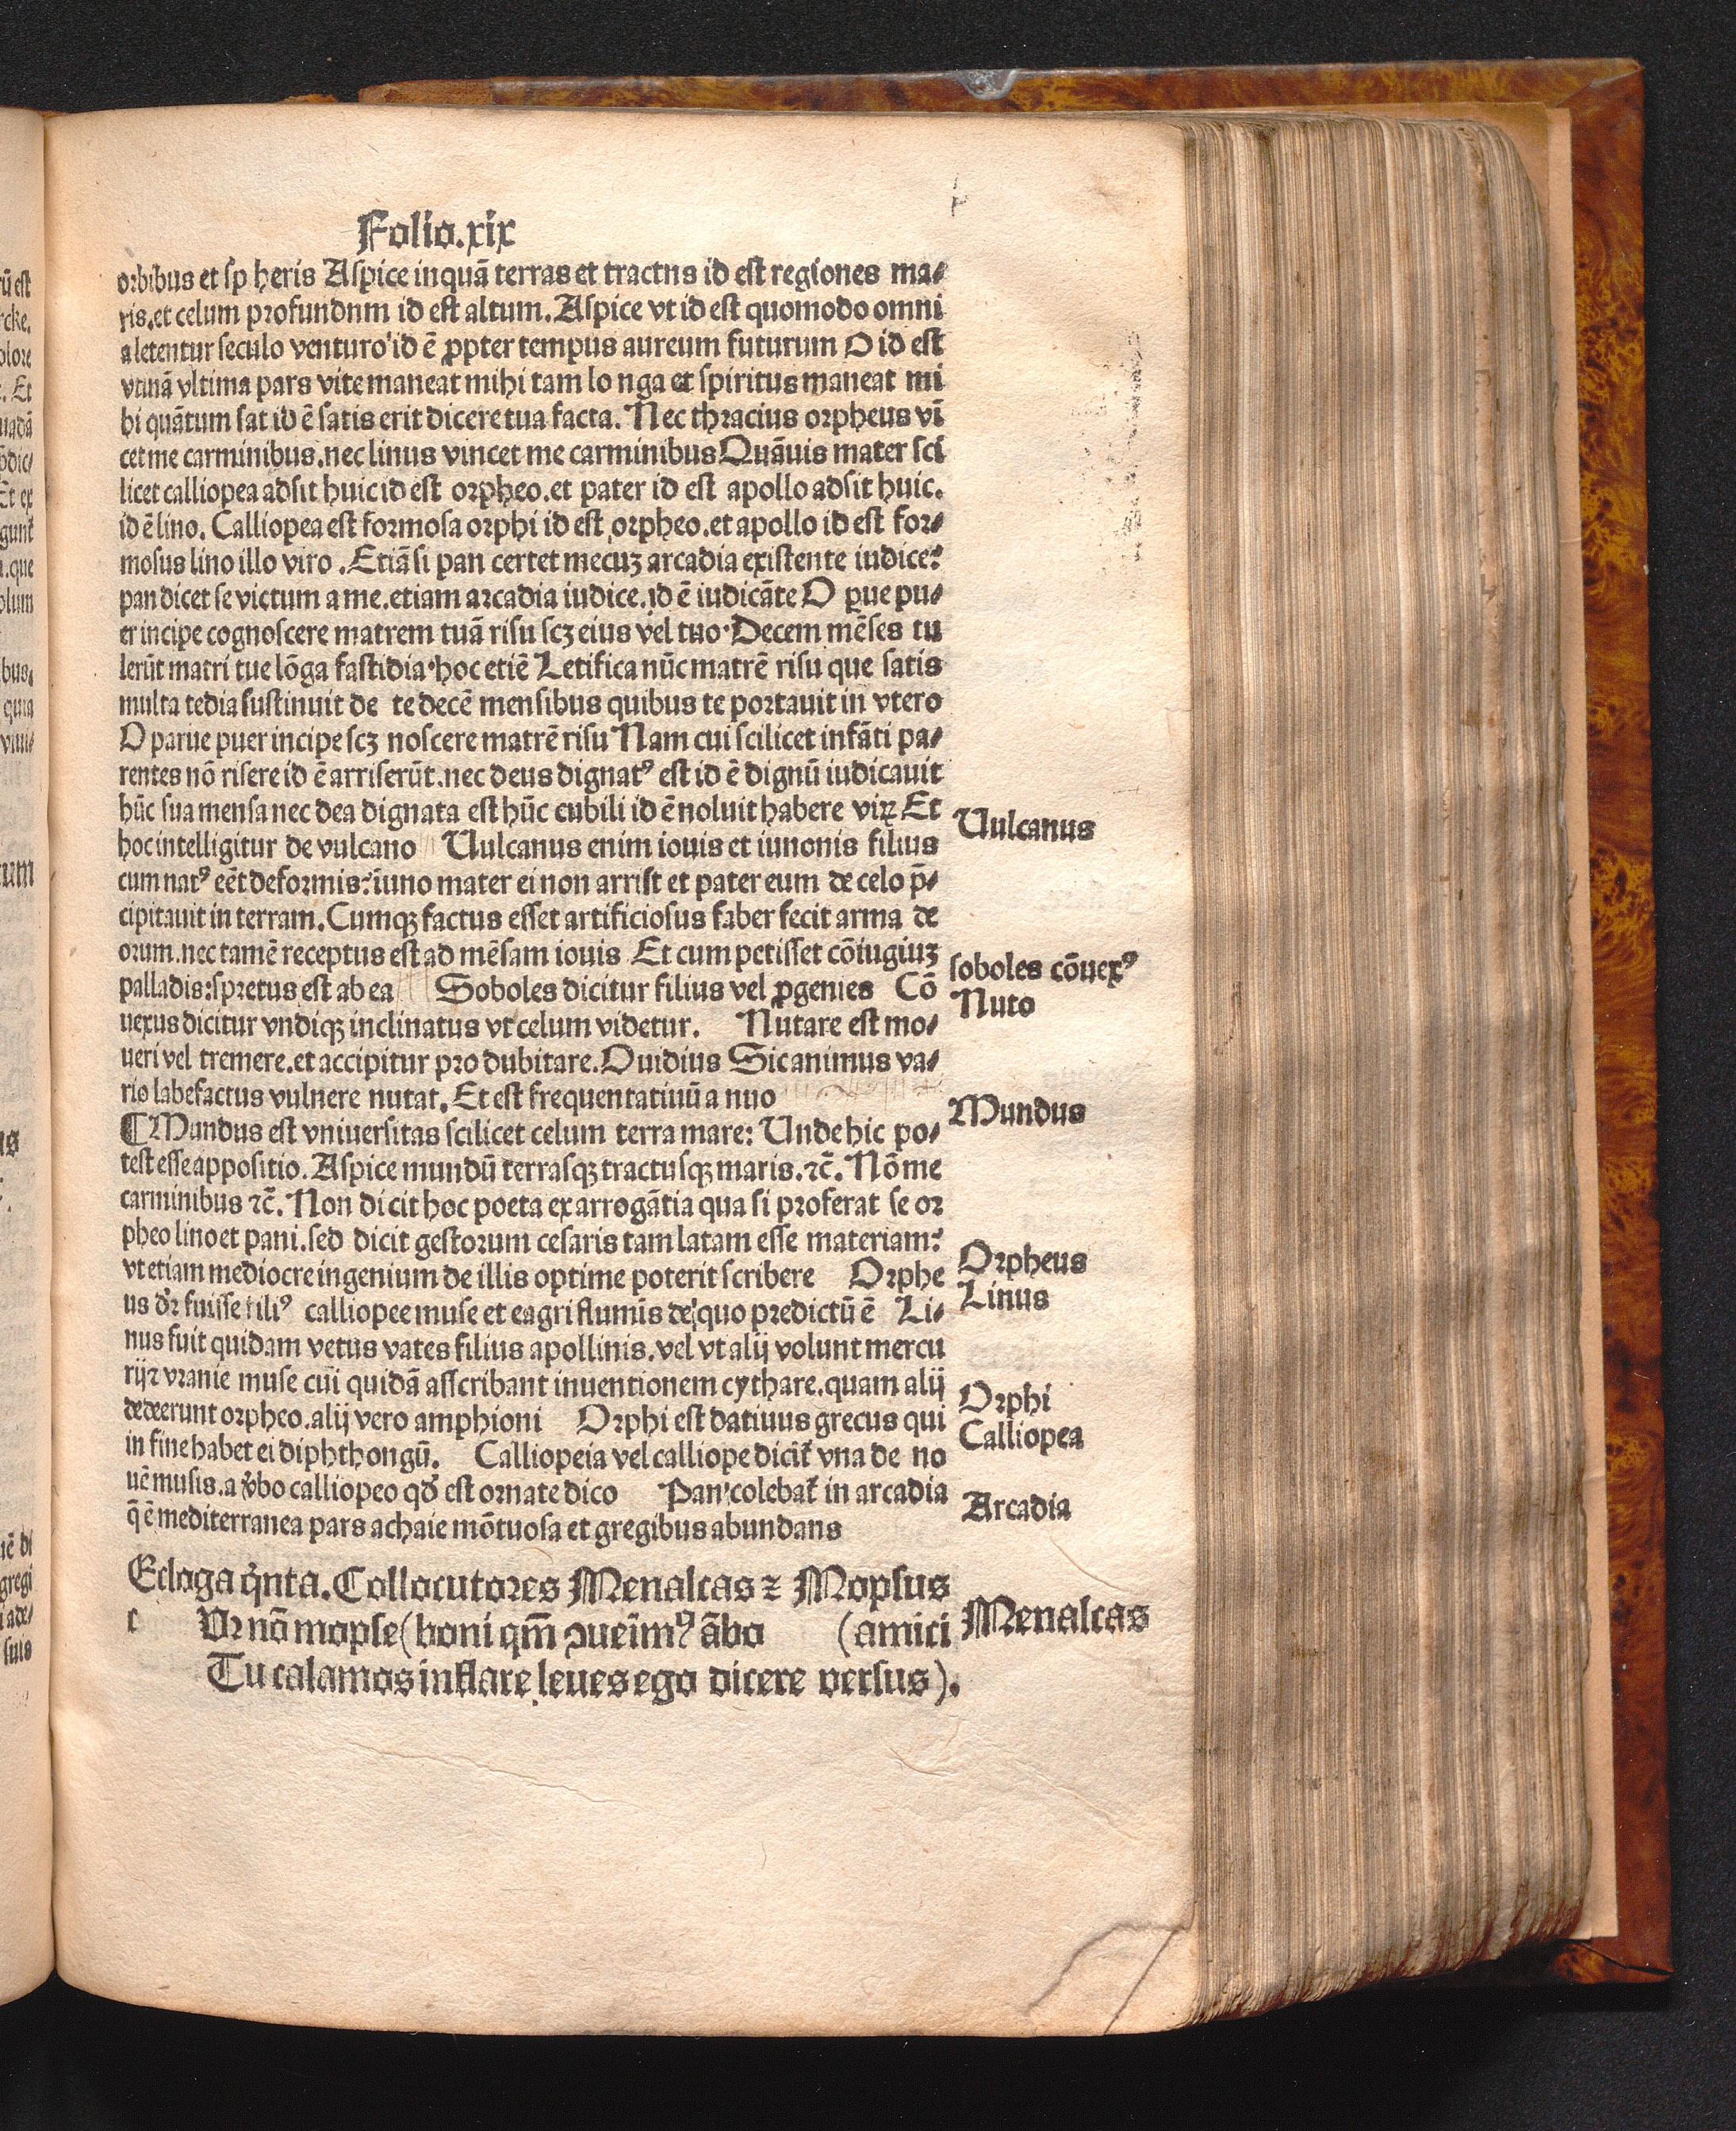 Folio.xix
orbibus et sp heris Aspice inquā terras et tractns id est regiones ma⸗
ris.et celum profundnm id est altum. Aspice vt id est quomodo omni
a letentur seculo venturo id ē ꝓpter tempus aureum futurum O id est
vtinā vltima pars vite maneat mihi tam lo nga et spiritus maneat mi
hi quātum sat id ē satis erit dicere tua facta. Nec thracius orpheus vī
cet me carminibus.nec linus vincet me carminibus Quāuis mater sci
licet calliopea adsit huic id est orpheo.et pater id est apollo adsit huic.
id ē lino. Calliopea est formosa orphi id est orpheo.et apollo id est for⸗
mosus lino illo viro . Etiā si pan certet mecuʒ arcadia existente iudice:
pan dicet se victum a me.etiam arcadia iudice.id ē iudicāte O ꝑue pu⸗
er incipe cognoscere matrem tuā risu scʒ eius vel tuo. Decem mēses tu
lerūt matri tue lōga fastidia.hoc etiē Letifica nūc matrē risu que satis
multa tedia sustinuit de te decē mensibus quibus te portauit in vtero
O parue puer incipe scʒ noscere matrē risu Nam cui scilicet infāti pa⸗
rentes nō risere id ē arriserūt.nec deus dignatꝰ est id ē dignū iudicauit
hūc sua mensa nec dea dignata est hūc cubili id ē noluit habere viꝝ Et
hoc intelligitur de vulcano Uulcanus enim iouis et iunonis filius
cum natꝰ eēt deformis: iuno mater ei non arrist et pater eum de celo p̄⸗
cipitauit in terram. Cumqʒ factus esset artificiosus faber fecit arma de
orum.nec tamē receptus est ad mēsam iouis Et cum petisset cōiugiuʒ
palladis:spretus est ab ea Soboles dicitur filius vel ꝓgenies Cō
uexus dicitur vndiqʒ inclinatus vt celum videtur. Nutare est mo⸗
ueri vel tremere.et accipitur pro dubitare. Ouidius Sic animus va⸗
rio labefactus vulnere nutat. Et est frequentatiuū a nuo
¶ Mundus est vniuersitas scilicet celum terra mare: Unde hic po⸗
test esse appositio. Aspice mundū terrasqʒ tractusqʒ maris. ⁊c̄. Nō me
carminibus ⁊c̄. Non dicit hoc poeta ex arrogātia qua si proferat se or
pheo lino et pani.sed dicit gestorum cesaris tam latam esse materiam:
vt etiam mediocre ingenium de illis optime poterit scribere Orphe
us dr̄ fuisse filiꝰ calliopee muse et eagri flumīs de quo predictū ē Li⸗
nus fuit quidam vetus vates filius apollinis.vel vt alij volunt mercu
rij⁊ vranie muse cui quidā asscribant inuentionem cythare.quam alij
dederunt orpheo.alij vero amphioni Orphi est datiuus grecus qui
in fine habet ei diphthongū. Calliopeia vel calliope dicit̄ vna de no
uē musis.a v̄bo calliopeo qd̄ est ornate dico Pan colebat̄ in arcadia
q̄ ē mediterranea pars achaie mōtuosa et gregibus abundans
Ecloga q̇nta. Collocutores Menalcas ⁊ Mopsus
c Ur nō mopse (boni qm̄ ꝯueīmꝰ ābo (amici
Tu calamos inflare leues ego dicere versus).
Uulcanus
soboles cōuexꝰ
Nuto
Mundus
Orpheus
Linus
Orphi
Calliopea
Arcadia
Menalcas